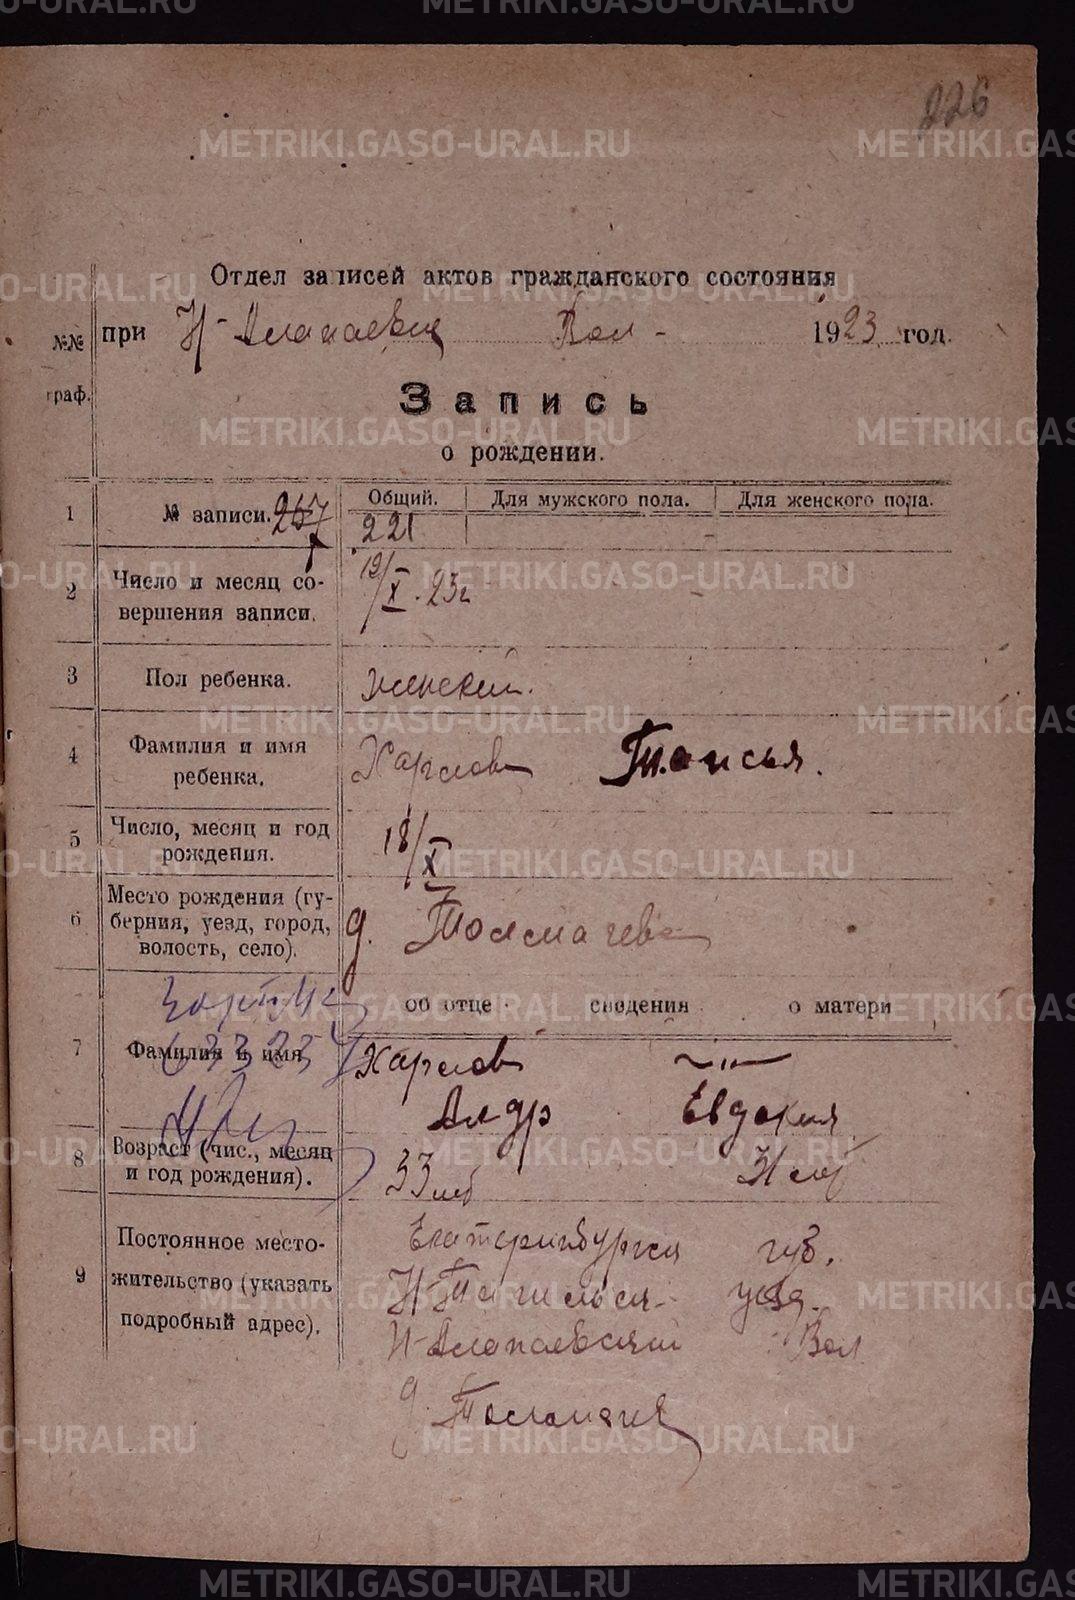 METRIKI.GASO-URAL.RU
226
Отдел записей актов гражданского состояния
при Н-Алапаевск Вол- 1923 год.
№№ граф.
Запись
о рождении.
1 № записи. 267 Общий. Для мужского пола. Для женского пола.
221
2 Число и месяц со-
вершения записи.
19/X.23г
3 Пол ребенка. женский.
4 Фамилия и имя
ребенка.
Харлова Таисья.
5 Число, месяц и год
рождения.
18/X
6 Место рождения (гу-
берния, уезд, город,
волость, село).
д. Толмачева
об отце сведения о матери
7 Фамилия и имя
Харлов —"—
Алдр Евдокия
8 Возраст (чис., месяц
и год рождения).
33 лет
9 Постоянное место-
жительство (указать
подробный адрес).
Екатеринбургся губ.
Н-Тагильск. уезд.
Н-Алапаевский Вол
д. Толмачева